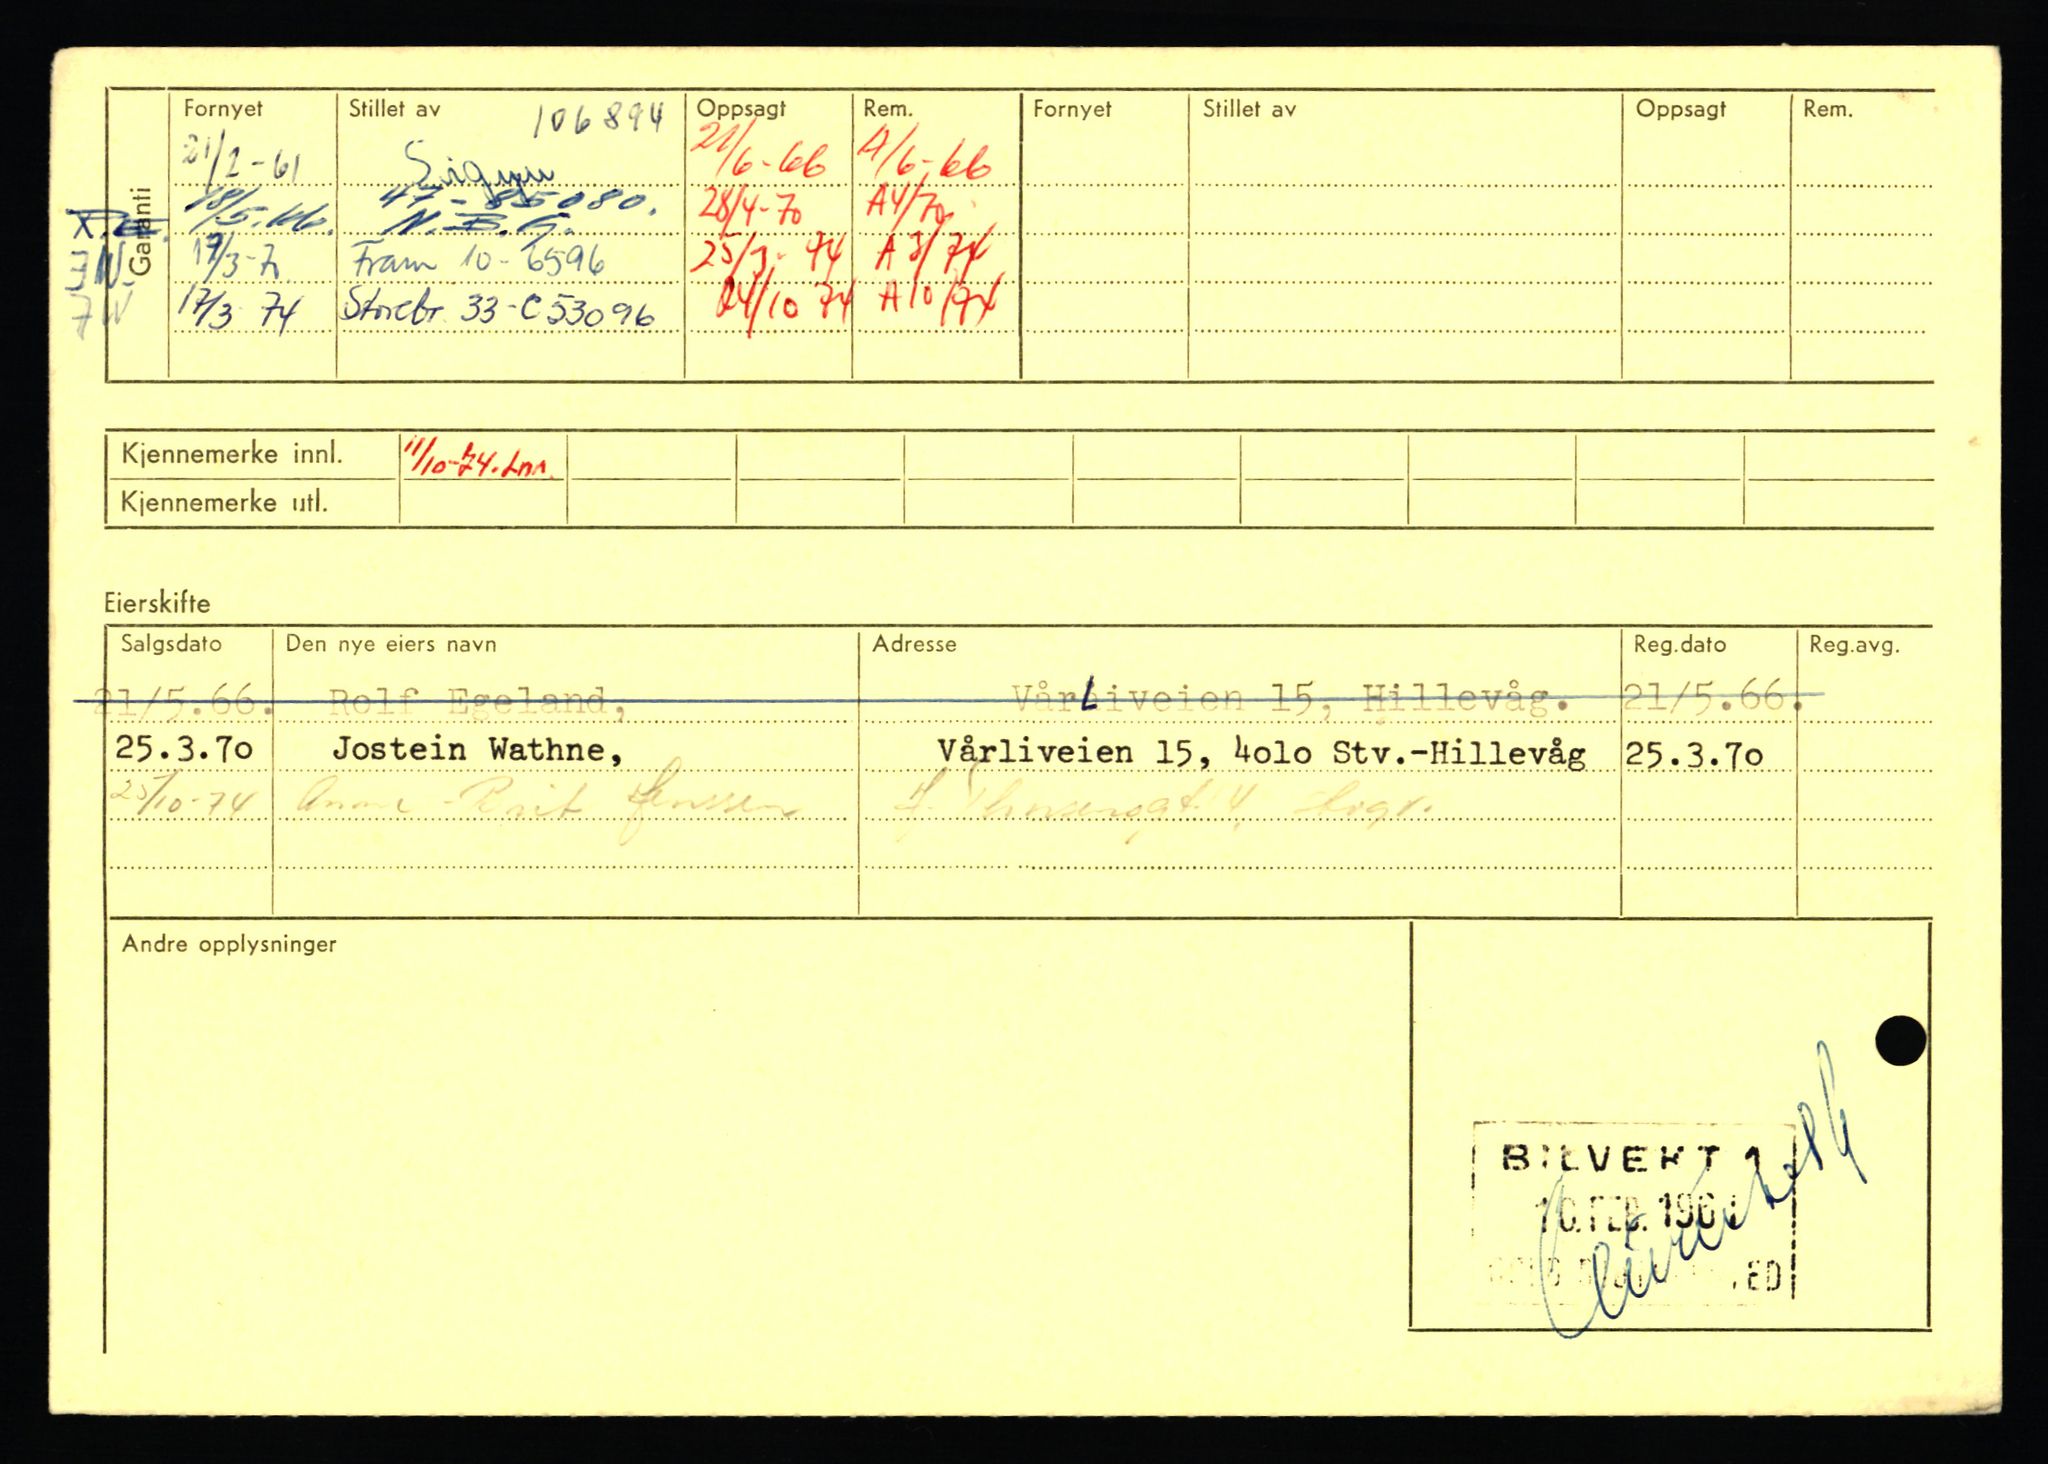 Garanti
Fornyet Stillet av 106894 Oppsagt Rem. Fornyet Stillet av Oppsagt Rem.
21/2-61 Sigyn 21/6-66 A/6-66
18/5.66. 47-85080. N.B.G. 28/4-70 A4/70
J.W. 17/3-7 Fram 10-6596 25/3-74 A3/74
JW 17/3 74 Storebr. 33-C53096 24/10 74 A10/74
Kjennemerke innl. 11/10-74.
Kjennemerke utl.
Eierskifte
Salgsdato Den nye eiers navn Adresse Reg.dato Reg.avg.
21/5.66. Rolf Egeland, Vårliveien 15, Hillevåg. 21/5.66.
25.3.70 Jostein Wathne, Vårliveien 15, 4010 Stv.-Hillevåg 25.3.70
25/10-74
Andre opplysninger
BILVERT 1
10. FEB. 196